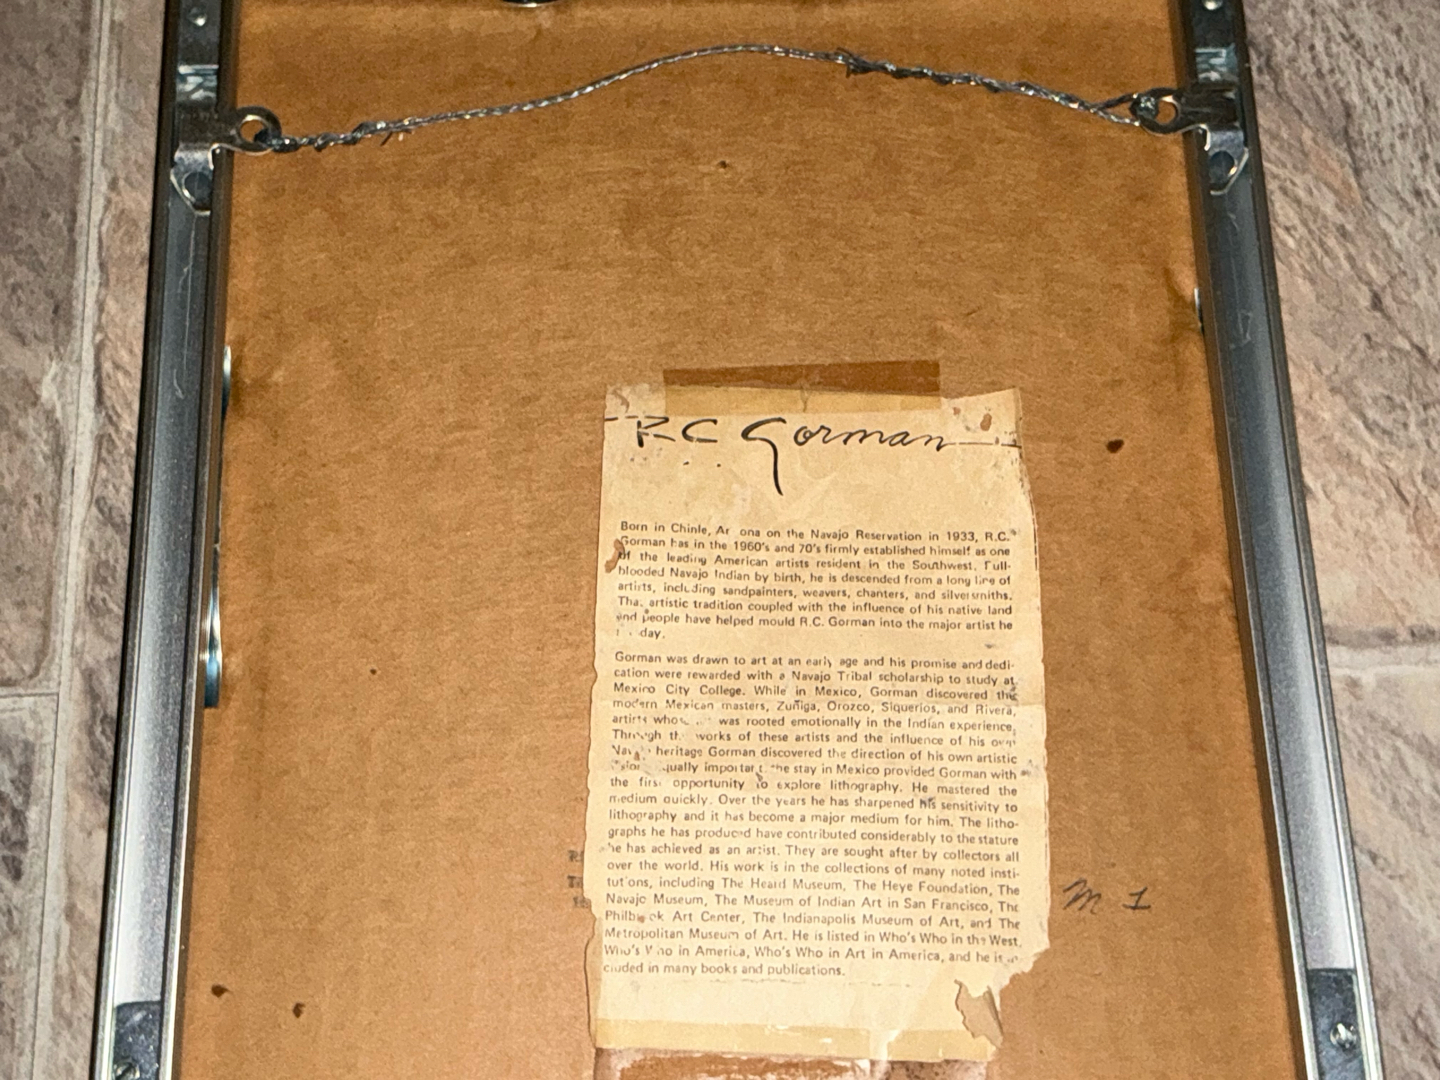 R.C. Gorman
Born in Chinle, Ar ona on the Navajo Reservation in 1933, R.C.
Gorman has in the 1960's and 70's firmly established himself as one
of the leading American artists resident in the Southwest. Full-
blooded Navajo Indian by birth, he is descended from a long line of
artists, including sandpainters, weavers, chanters, and silversmiths.
That artistic tradition coupled with the influence of his native land
and people have helped mould R.C. Gorman into the major artist he
day.
Gorman was drawn to art at an early age and his promise and dedi-
cation were rewarded with a Navajo Tribal scholarship to study at
Mexico City College. While in Mexico, Gorman discovered the
modern Mexican masters, Zuñiga, Orozco, Siquerios, and Rivera,
artists whos was rooted emotionally in the Indian experience.
Through th works of these artists and the influence of his own
Nava heritage Gorman discovered the direction of his own artistic
qually important the stay in Mexico provided Gorman with
the first opportunity to explore lithography. He mastered the
medium quickly. Over the years he has sharpened his sensitivity to
lithography and it has become a major medium for him. The litho-
graphs he has produced have contributed considerably to the stature
he has achieved as an artist. They are sought after by collectors all
over the world. His work is in the collections of many noted insti-
tutions, including The Heard Museum, The Heye Foundation, The
Navajo Museum, The Museum of Indian Art in San Francisco, The
Philbrook Art Center, The Indianapolis Museum of Art, and The
Metropolitan Museum of Art. He is listed in Who's Who in the West,
Who's Who in America, Who's Who in Art in America, and he is in-
cluded in many books and publications.
M 1